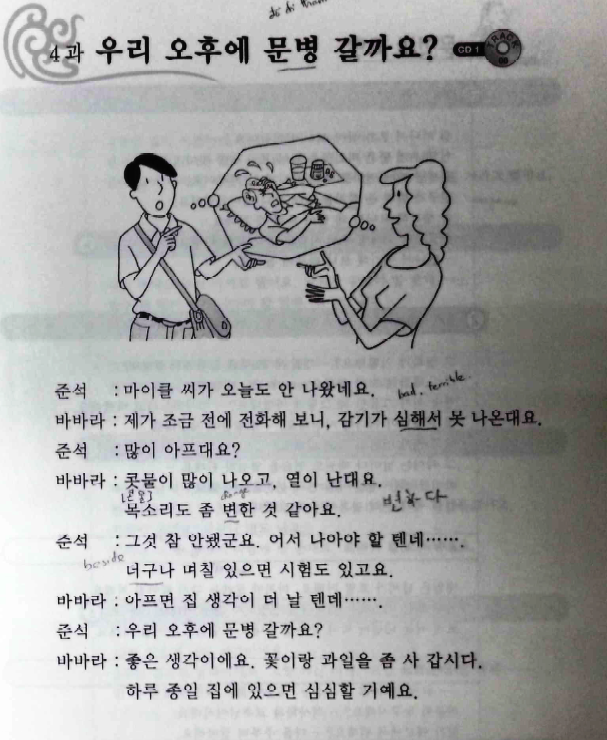 4과 우리 오후에 문병 갈까요? CD 1 TRACK
준석 : 마이클 씨가 오늘도 안 나왔네요. bad, terrible
바바라 : 제가 조금 전에 전화해 보니, 감기가 심해서 못 나온대요.
준석 : 많이 아프대요?
바바라 : 콧물이 많이 나오고, 열이 난대요.
변하다
목소리도 좀 변한 것 같아요.
준석 : 그것 참 안됐군요. 어서 나아야 할 텐데…….
beside
너구나 며칠 있으면 시험도 있고요.
바바라 : 아프면 집 생각이 더 날 텐데…….
준석 : 우리 오후에 문병 갈까요?
바바라 : 좋은 생각이에요. 꽃이랑 과일을 좀 사 갑시다.
하루 종일 집에 있으면 심심할 거예요.